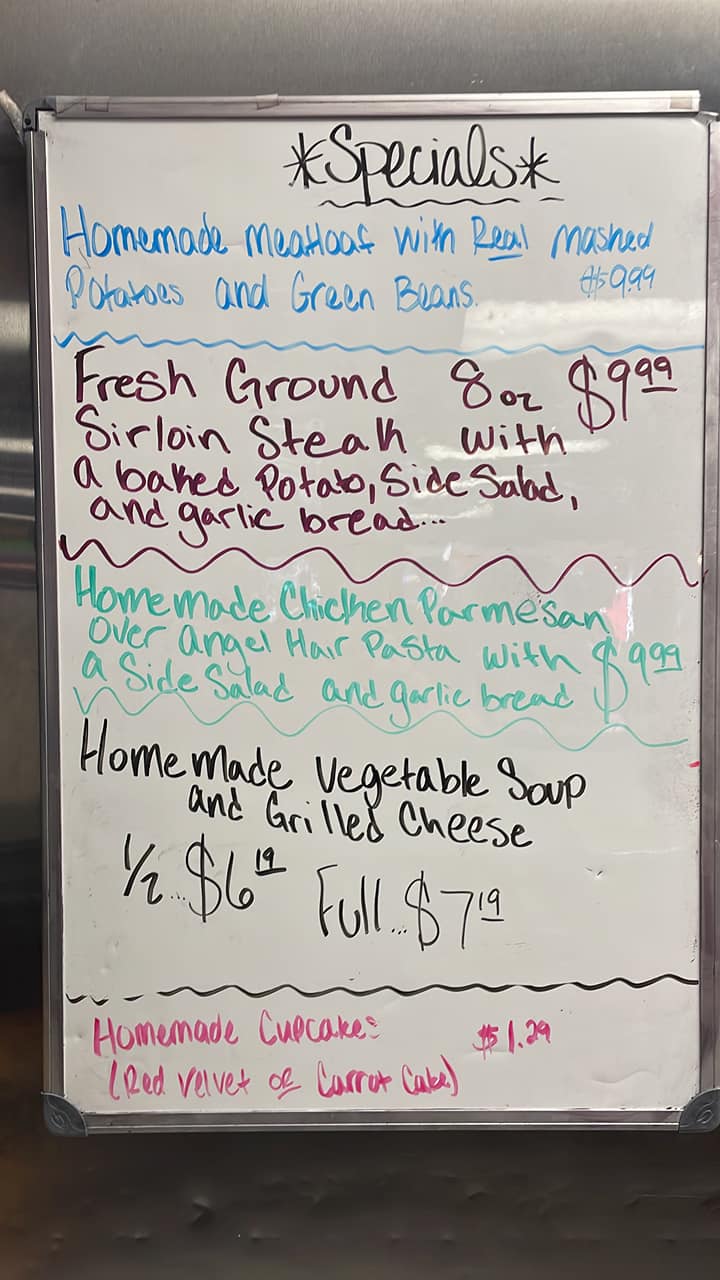 *Specials*
Homemade Meatloaf with Real Mashed
Potatoes and Green Beans. $9.99
Fresh Ground 8oz $9.99
Sirloin Steak with
a baked Potato, Side Salad,
and garlic bread...
Homemade Chicken Parmesan
over angel Hair Pasta with $9.99
a Side Salad and garlic bread
Homemade Vegetable Soup
and Grilled Cheese
1/2...$6.19 Full...$7.19
Homemade Cupcakes $1.29
(Red Velvet or Carrot Cake)